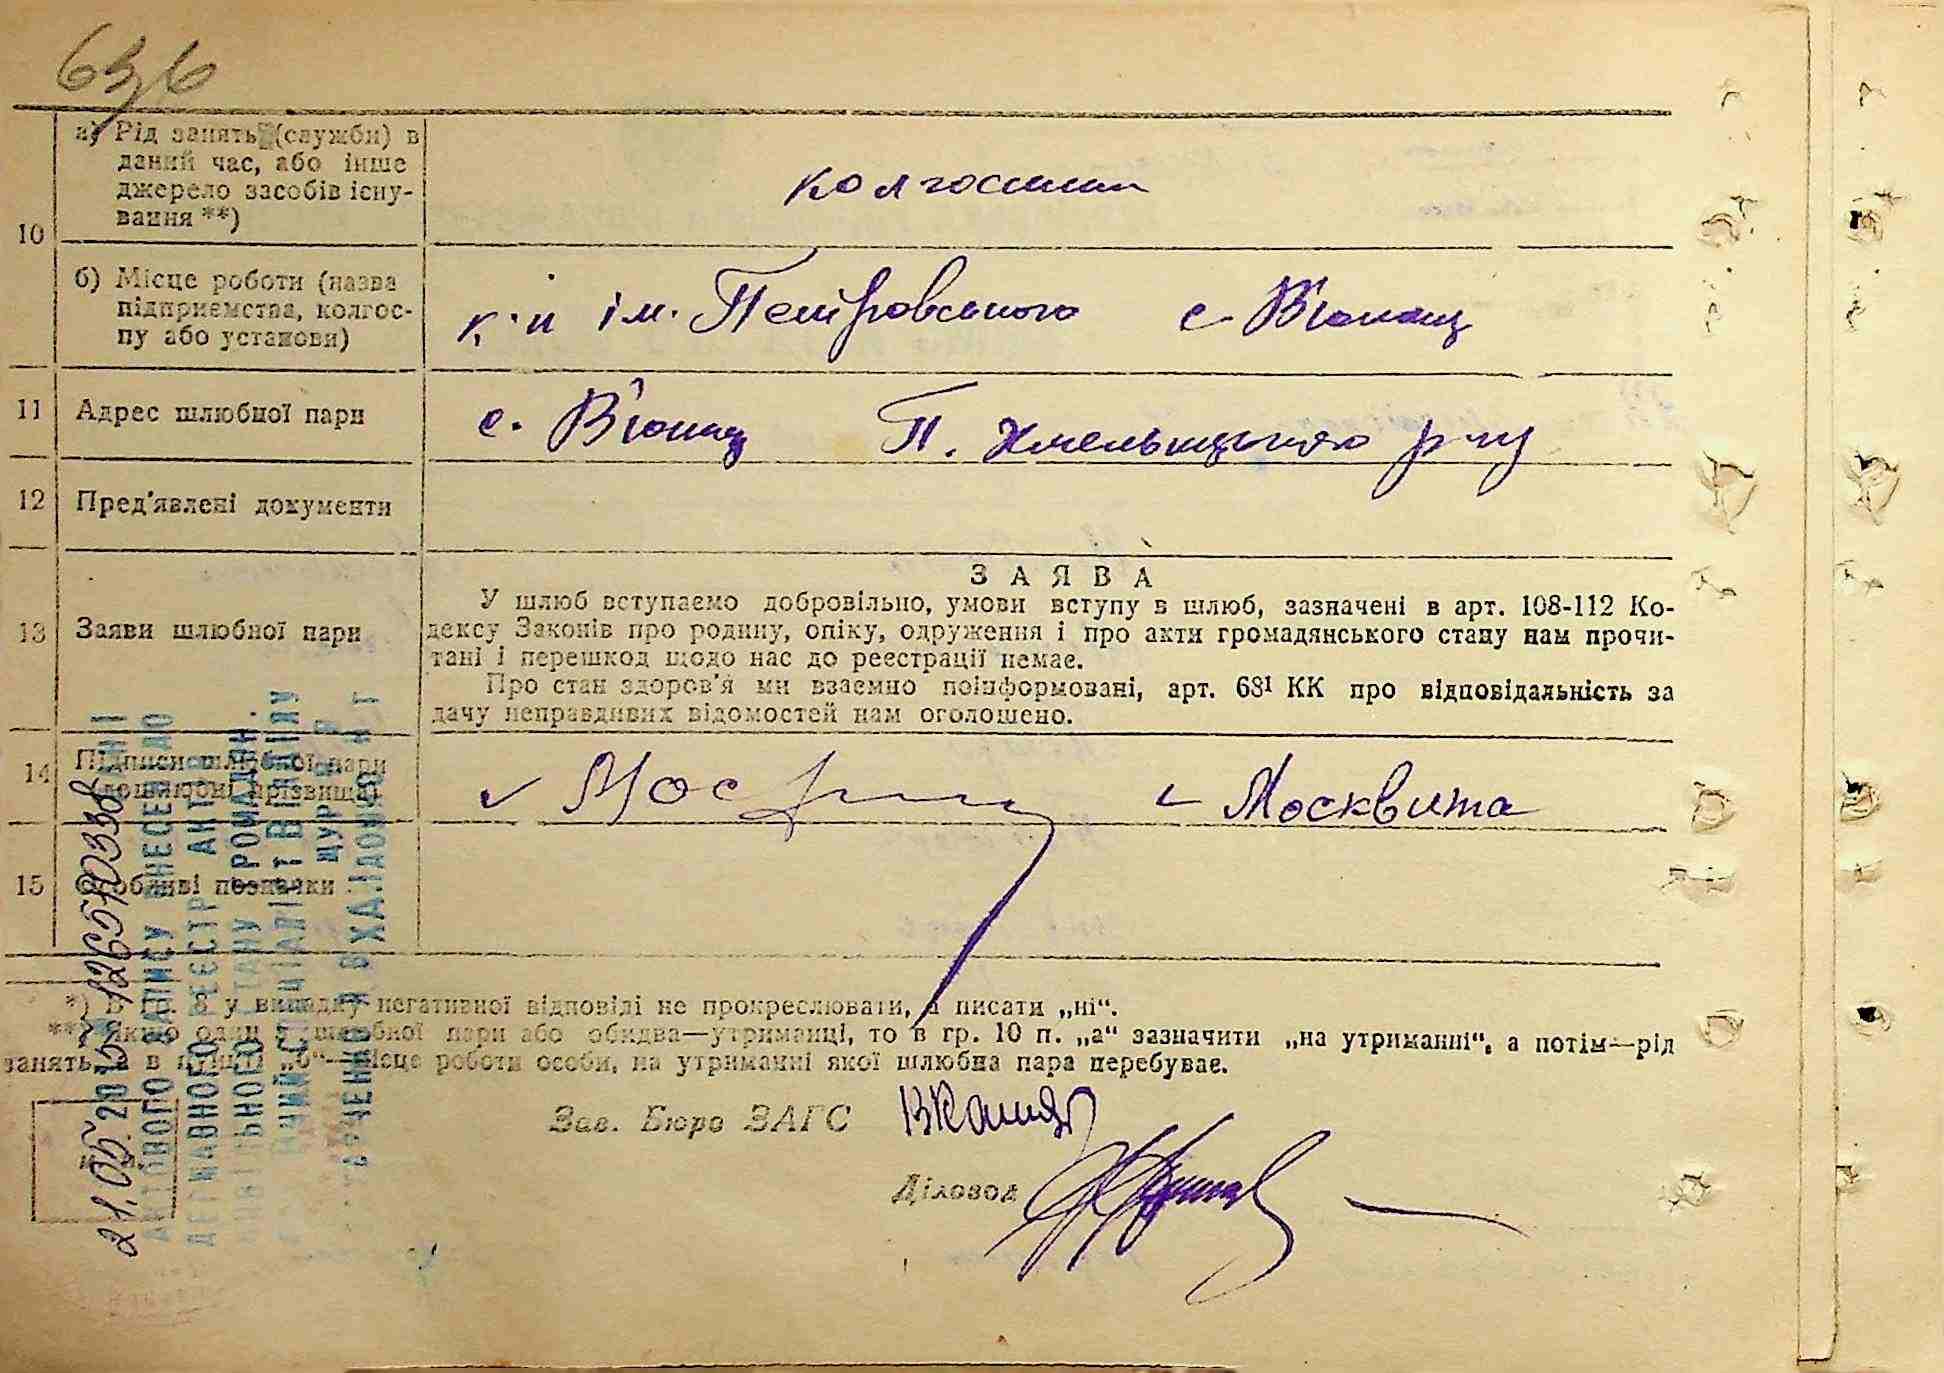 10
а) Рід занять (служби) в
даний час, або інше
джерело засобів існу-
вання **)
колгоспник
б) Місце роботи (назва
підприємства, колгос-
пу або установи)
к-п ім. Петровського с. В'юнищ
11 Адрес шлюбної пари
с. В'юнищ П. Хмельницького р-ну
12 Пред'явлені документи
13 Заяви шлюбної пари
ЗАЯВА
У шлюб вступаємо добровільно, умови вступу в шлюб, зазначені в арт. 108-112 Ко-
дексу Законів про родину, опіку, одруження і про акти громадянського стану нам прочи-
тані і перешкод щодо нас до реєстрації немає.
Про стан здоров'я ми взаємно поінформовані, арт. 68¹ КК про відповідальність за
дачу неправдивих відомостей нам оголошено.
14 Підписи шлюбної пари
(дошлюбні прізвища)
Москвита
15 Особливі позначки
*) В гр. 8 у випадку негативної відповіді не прокреслювати, а писати „ні“.
**) Якщо один з шлюбної пари або обидва—утриманці, то в гр. 10 п. „а“ зазначити „на утриманні“, а потім—рід
занять, а в пункті „б“—місце роботи особи, на утриманні якої шлюбна пара перебуває.
Зав. Бюро ЗАГС
Діловод
21.05.2015
АКТОВОГО ЗАПИСУ ВНЕСЕНО ДО
ДЕРЖАВНОГО РЕЄСТРУ АКТІВ
ЦИВІЛЬНОГО СТАНУ ГРОМАДЯН.